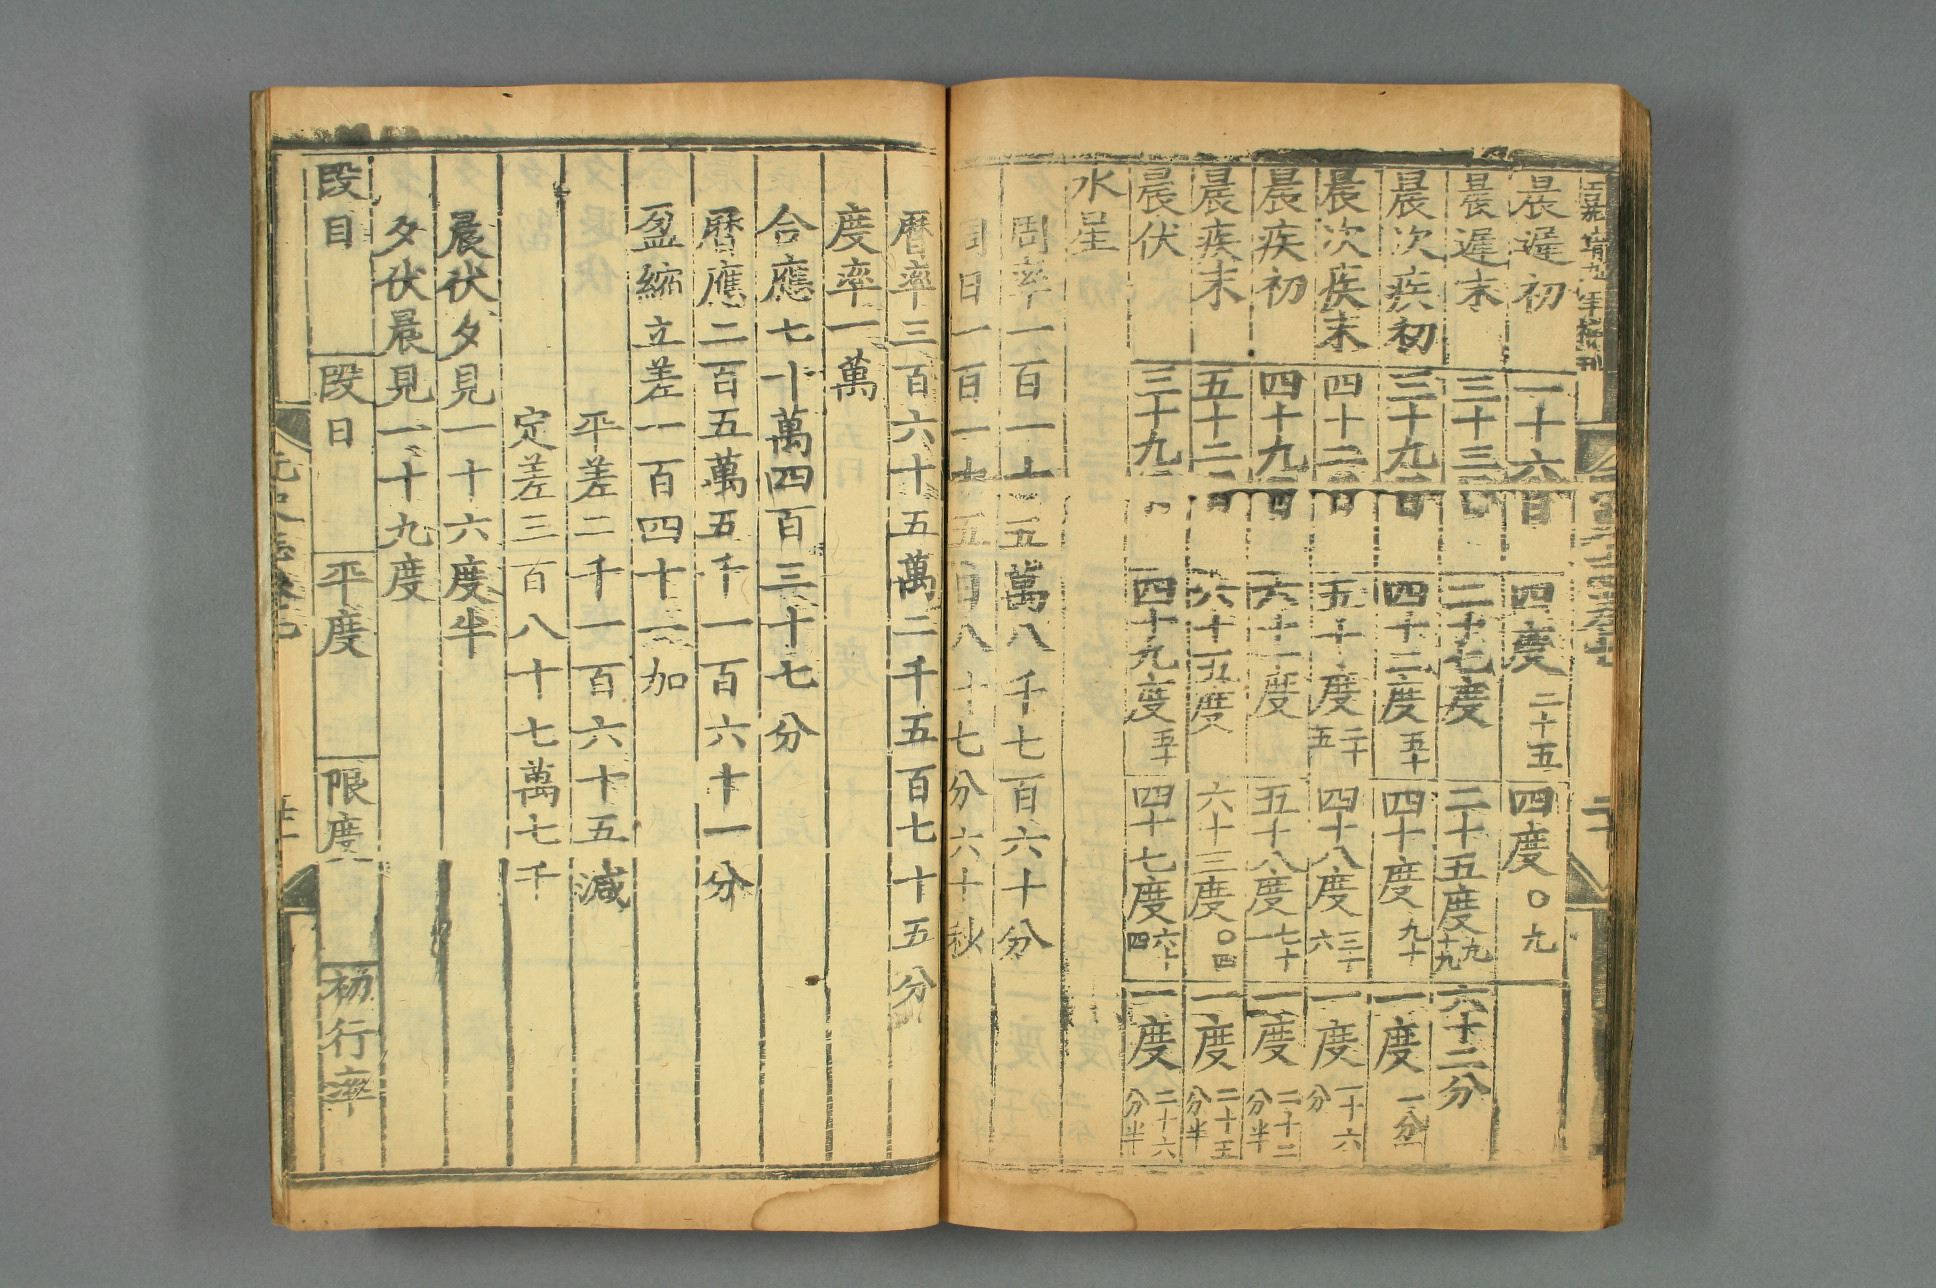 晨遲初 一十六日 四度二十五 四度〇九
晨遲末 三十三日 二十七度 二十五度九十九 六十二分
晨次疾初 三十九日 四十二度五十 四十度九十 一度一分
晨次疾末 四十二日 五十度二十五 四十八度三十六 一度一十六分
晨疾初 四十九日 六十一度 五十八度七十一 一度二十二分半
晨疾末 五十二日 六十五度 六十三度〇四 一度二十五分半
晨伏 三十九日 四十九度五十 四十七度六十四 一度二十六分半
水星
周率一百一十五萬八千七百六十分
周日一百一十五日八十七分六十秋
曆率三百六十五萬二千五百七十五分
度率一萬
合應七十萬四百三十七分
曆應二百五萬五千一百六十一分
盈縮立差一百四十一加
平差二千一百六十五減
定差三百八十七萬七千
晨伏夕見一十六度半
夕伏晨見一十九度
段目 段日 平度 限度 初行率